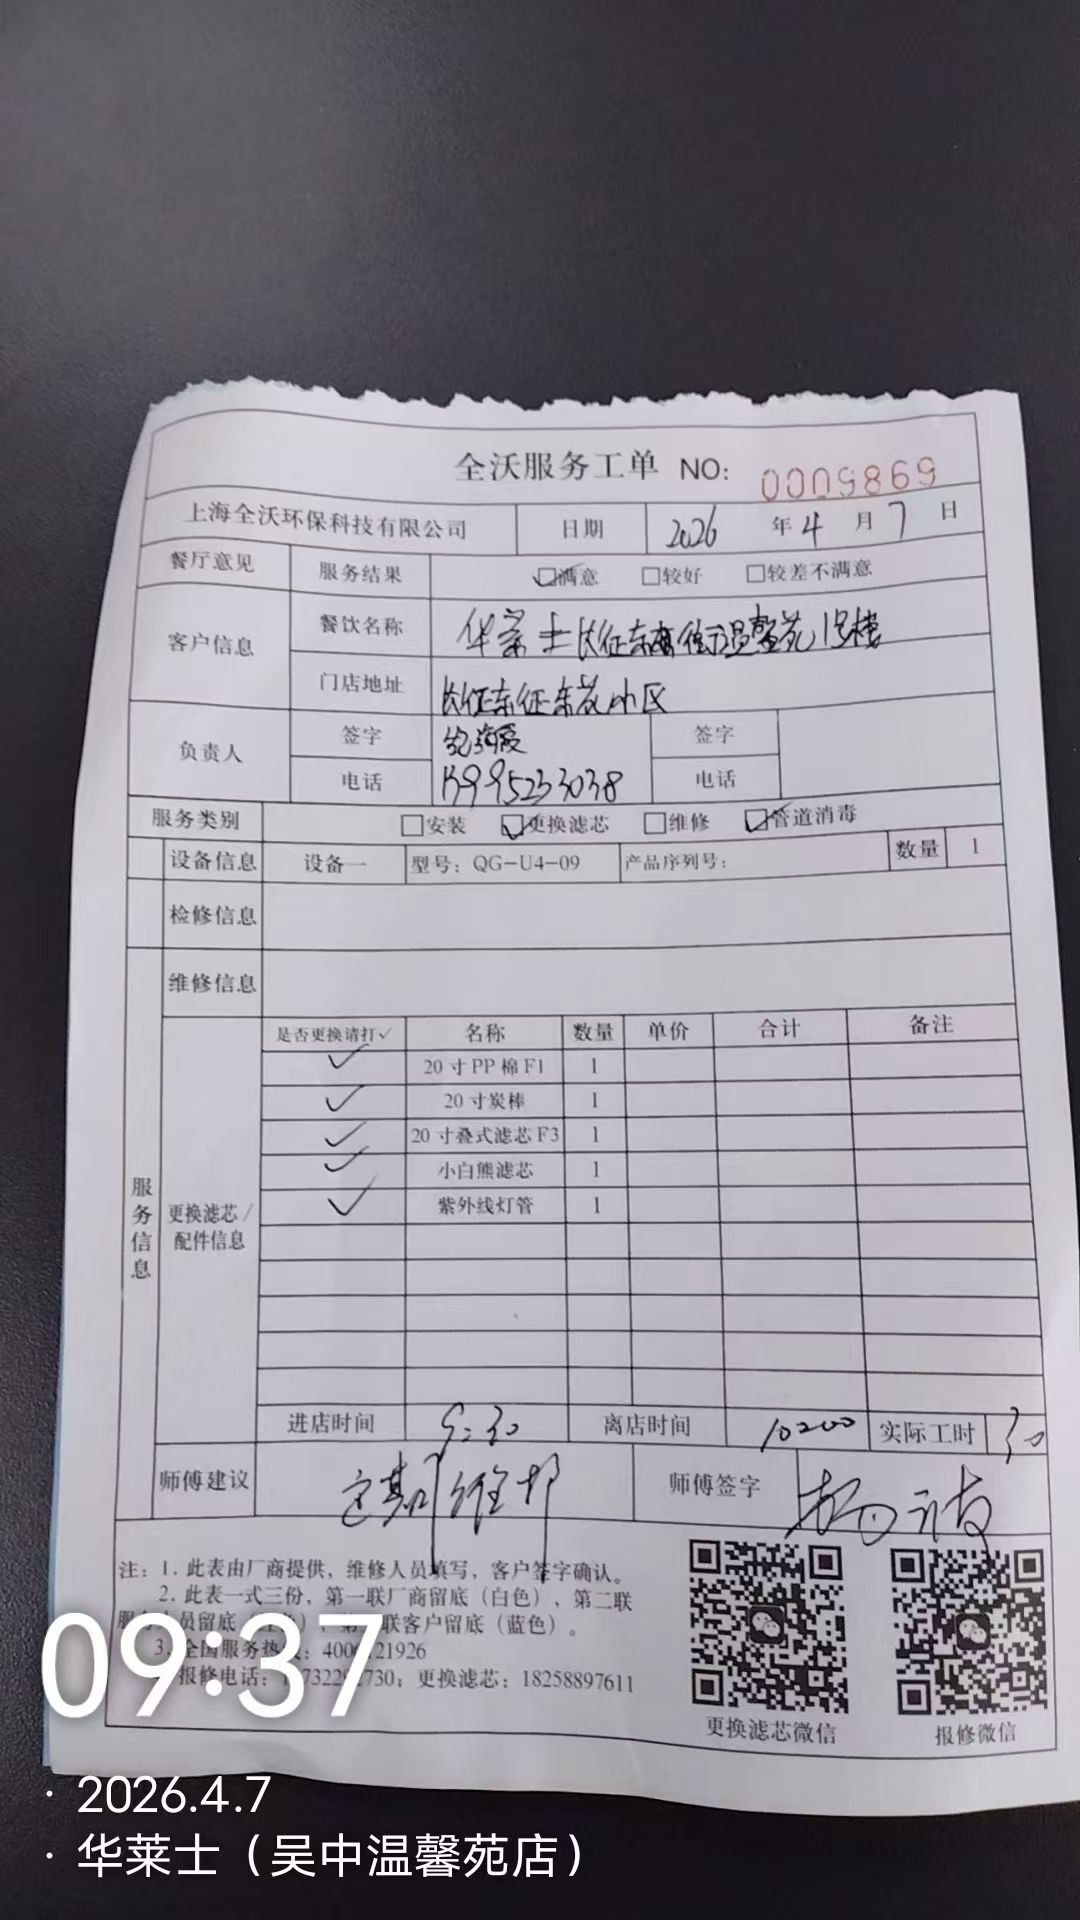 全沃服务工单 NO: 0009869
上海全沃环保科技有限公司 日期 2026 年 4 月 7 日
餐厅意见 服务结果 ☑满意 □较好 □较差不满意
客户信息 餐饮名称 华莱士长征东街温馨苑1号楼
门店地址 长征东征东苑小区
负责人 签字 签字
电话 13995233038 电话
服务类别 □安装 ☑更换滤芯 □维修 ☑管道消毒
设备信息 设备一 型号：QG-U4-09 产品序列号： 数量 1
检修信息
维修信息
服务信息
更换滤芯/配件信息
是否更换请打✓ 名称 数量 单价 合计 备注
✓ 20寸PP棉F1 1
✓ 20寸炭棒 1
✓ 20寸叠式滤芯F3 1
✓ 小白熊滤芯 1
✓ 紫外线灯管 1
进店时间 9:30 离店时间 10:00 实际工时 30
师傅建议 定期维护 师傅签字 杨
注：1. 此表由厂商提供，维修人员填写，客户签字确认。
2. 此表一式三份，第一联厂商留底（白色），第二联
服务人员留底 联客户留底（蓝色）。
3. 全国服务热线：400 21926
报修电话： 730；更换滤芯：18258897611
更换滤芯微信 报修微信
09:37
· 2026.4.7
· 华莱士（吴中温馨苑店）